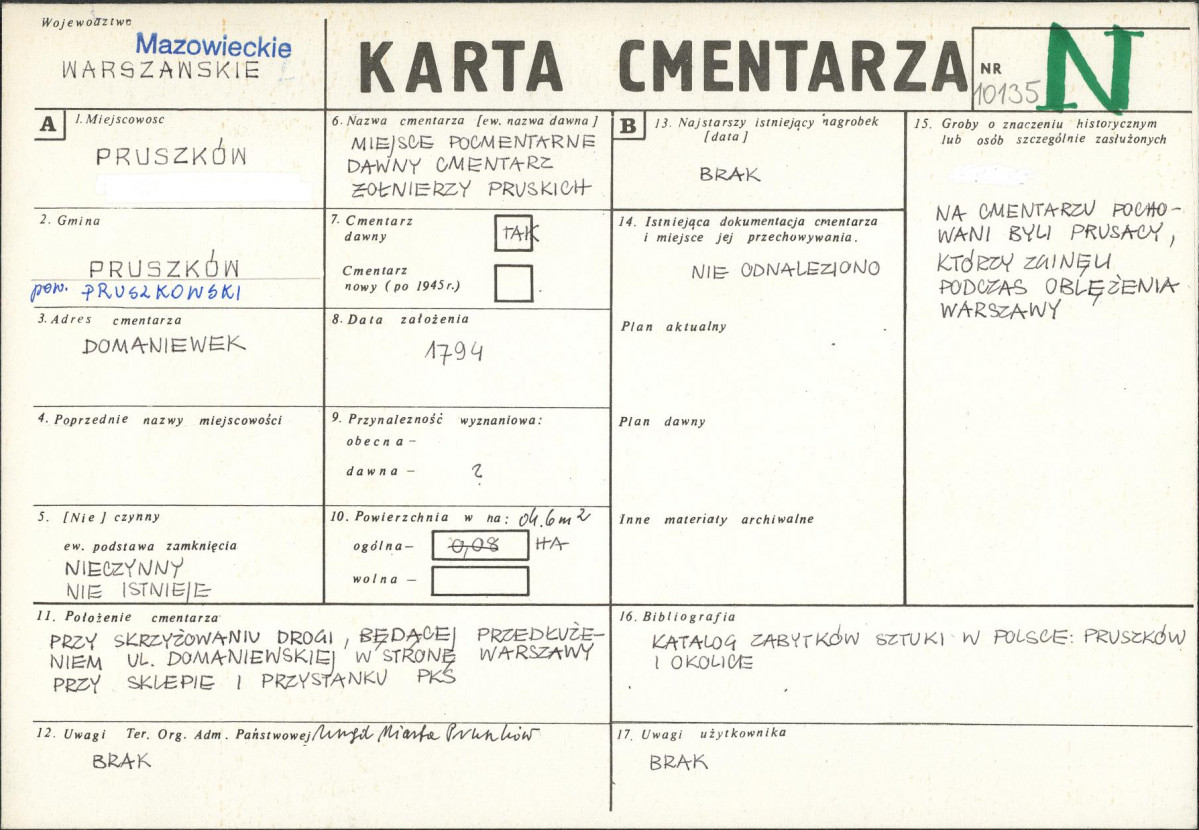 Województwo
Mazowieckie
WARSZAWSKIE
KARTA CMENTARZA
NR
10135
N
A
1. Miejscowosc
PRUSZKÓW
2. Gmina
PRUSZKÓW
pow. PRUSZKOWSKI
3. Adres cmentarza
DOMANIEWEK
4. Poprzednie nazwy miejscowości
5. [Nie] czynny
ew. podstawa zamknięcia
NIECZYNNY
NIE ISTNIEJE
6. Nazwa cmentarza [ew. nazwa dawna]
MIEJSCE POCMENTARNE
DAWNY CMENTARZ
ŻOŁNIERZY PRUSKICH
7. Cmentarz
dawny
TAK
Cmentarz
nowy (po 1945 r.)
8. Data założenia
1794
9. Przynalezność wyznaniowa:
obecna –
dawna – ?
10. Powierzchnia w ha: ok. 6 m2
ogólna – 0,08 HA
wolna –
11. Położenie cmentarza
PRZY SKRZYŻOWANIU DROGI, BĘDĄCEJ PRZEDŁUŻE-
NIEM UL. DOMANIEWSKIEJ W STRONĘ WARSZAWY
PRZY SKLEPIE I PRZYSTANKU PKS
12. Uwagi Ter. Org. Adm. Państwowej Urząd Miasta Pruszków
BRAK
B
13. Najstarszy istniejący nagrobek
[data]
BRAK
14. Istniejąca dokumentacja cmentarza
i miejsce jej przechowywania.
NIE ODNALEZIONO
Plan aktualny
Plan dawny
Inne materiały archiwalne
15. Groby o znaczeniu historycznym
lub osób szczególnie zasłużonych
NA CMENTARZU POCHO-
WANI BYLI PRUSACY,
KTÓRZY ZGINĘLI
PODCZAS OBLĘŻENIA
WARSZAWY
16. Bibliografia
KATALOG ZABYTKÓW SZTUKI W POLSCE: PRUSZKÓW
I OKOLICE
17. Uwagi użytkownika
BRAK